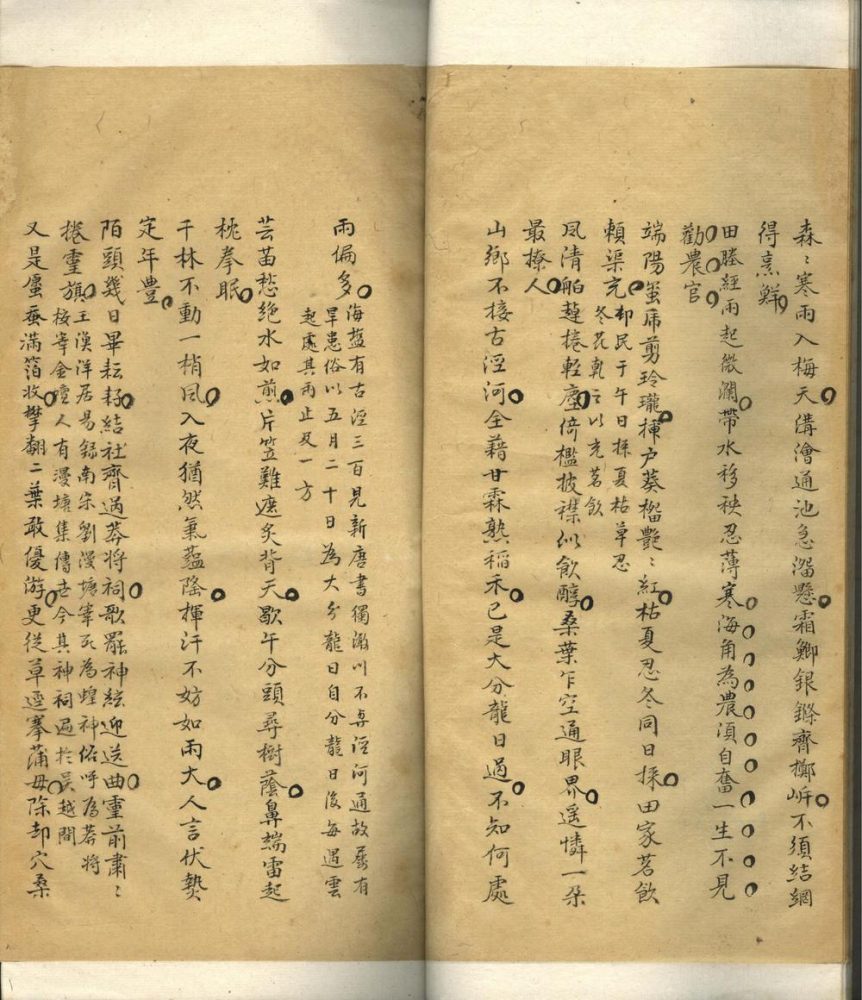 森〻寒雨入梅天溝澮通池急溜懸霜鯽銀鱗齊擲岍不須結網
得烹鮮
田塍經雨起微瀾帶水移秧忍薄寒海角為農湏自奮一生不見
勸農官
端陽蚕帋剪玲瓏揷户葵榴艷〻紅枯夏忍冬同日採田家茗飲
頼渠充郁民于午日採夏枯草忍
冬花乾之以充茗飲
凨清船趠捲輕塵倚檻披襟似飲醇桑葉乍空通眼界遥憐一朶
最撩人
山鄉不接古涇河全藉甘霖熟稲禾已是大分龍日過不知何處
雨偏多海盬有古涇三百見新唐書獨澉以不與涇河通故易有
旱患俗以五月二十日為大分龍日自分龍日後每遇雲
起處其雨止及一方
芸苗愁絶水如煎片笠難遮炙背天歇午分頭尋樹蔭鼻端雷起
枕拳眠
千林不動一梢凨入夜猶然氣藴隆揮汗不妨如雨大人言伏熱
定年豊
陌頭幾日畢耘耔結社齊過莽將祠歌罷神絃迎送曲靈前肅〻
捲靈旗王漁洋居易録南宋劉漫塘宰死為蝗神俗呼為莽將
按宰金壇人有漫塘集傳世今其神祠遍扵吴越間
又是蜃蚕滿箔收攀翻二葉敢優游更從草逕搴蒲母除却穴桑